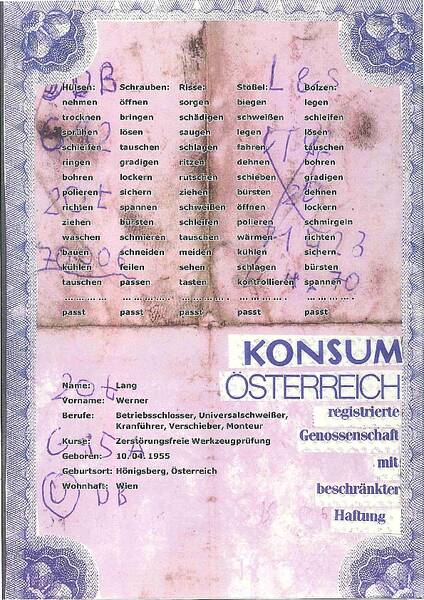 Hülsen: Schrauben: Risse: Stößel: Bolzen:
nehmen öffnen sorgen biegen legen
trocknen bringen schädigen schweißen schleifen
sprühen lösen saugen legen lösen
schleifen tauschen schlagen fahren tauschen
ringen gradigen ritzen dehnen bohren
bohren lockern rutschen schieben gradigen
polieren sichern ziehen bürsten dehnen
richten spannen schweißen öffnen lockern
ziehen bürsten schleifen polieren schmirgeln
waschen schmieren tauschen wärmen richten
bauen schneiden meiden kühlen sichern
kühlen feilen sehen schlagen bürsten
tauschen passen tasten kontrollieren spannen
passt passt passt passt passt
KONSUM
ÖSTERREICH
registrierte
Genossenschaft
mit
beschränkter
Haftung
Name: Lang
Vorname: Werner
Berufe: Betriebsschlosser, Universalschweißer,
Kranführer, Verschieber, Monteur
Kurse: Zerstörungsfreie Werkzeugprüfung
Geboren: 10/04. 1955
Geburtsort: Hönigsberg, Österreich
Wohnhaft: Wien
20t
DB